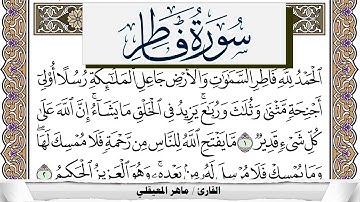 سورة فاطر
الْحَمْدُ لِلَّهِ فَاطِرِ السَّمَوَتِ وَالْأَرْضِ جَاعِلِ الْمَلَئِكَةِ رُسُلًا أُوْلِي
أَجْنِحَةٍ مَّثْنَى وَثُلَثَ وَرُبَعَ يَزِيدُ فِي الْخَلْقِ مَا يَشَاءُ إِنَّ اللَّهَ عَلَى
كُلِّ شَيْءٍ قَدِيرٌ ١ مَّا يَفْتَحِ اللَّهُ لِلنَّاسِ مِن رَّحْمَةٍ فَلَا مُمْسِكَ لَهَا
وَمَا يُمْسِكْ فَلَا مُرْسِلَ لَهُ مِنْ بَعْدِهِ وَهُوَ الْعَزِيزُ الْحَكِيمُ ٢
القارئ / ماهر المعيقلي